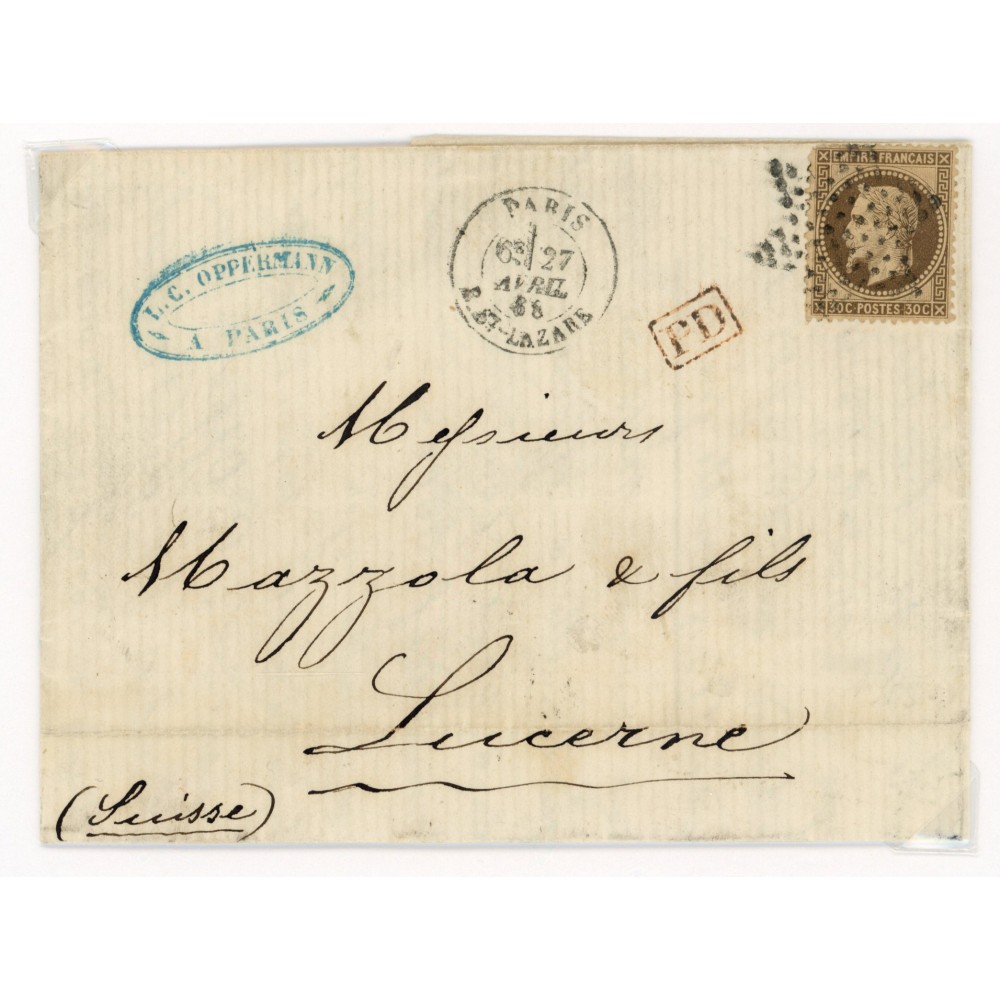 L.C. OPPERMANN
A PARIS
PARIS
6E 27
AVRIL
68
R. ST-LAZARE
PD
EMPIRE FRANCAIS
30C POSTES 30C
Messieurs
Mazzola & fils
Lucerne
(Suisse)